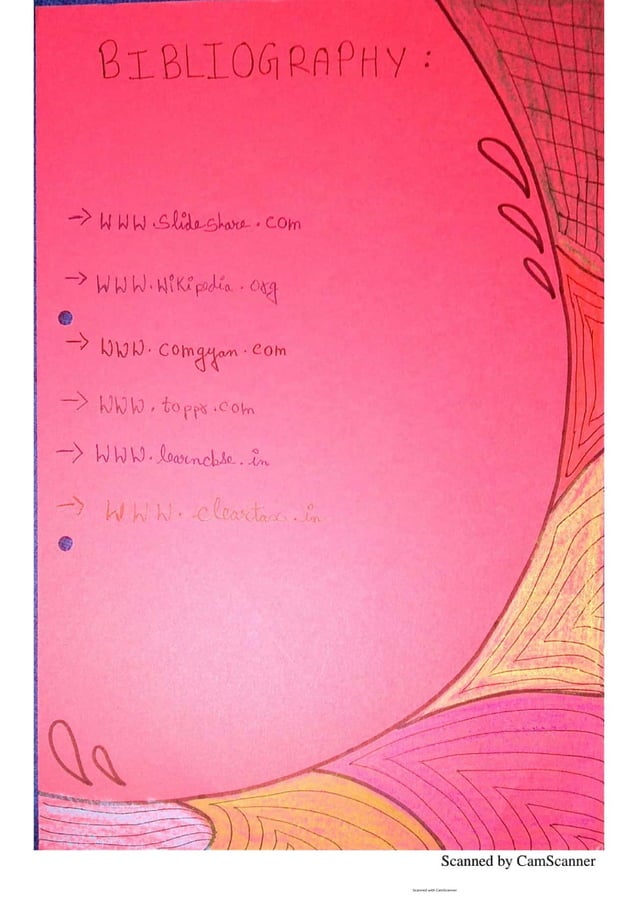 BIBLIOGRAPHY :
→ WWW.Slideshare.com
→ WWW.Wikipedia.org
→ WWW.comgyan.com
→ WWW.toppr.com
→ WWW.learncbse.in
→ WWW.cleartax.in
Scanned by CamScanner
Scanned with CamScanner